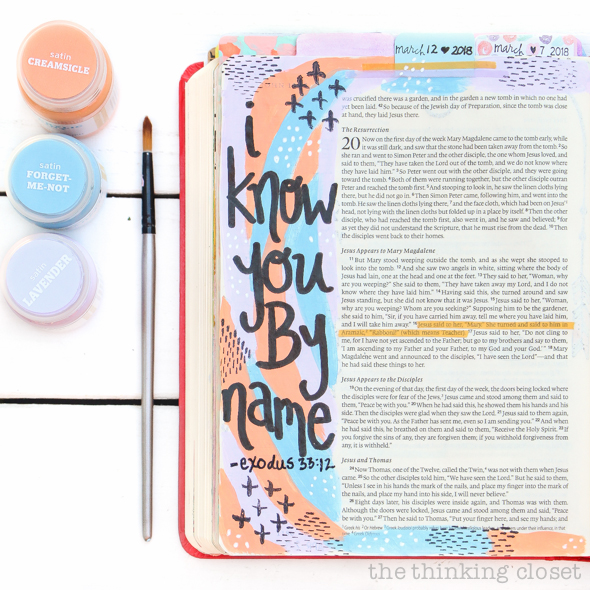 satin
CREAMSICLE
satin
FORGET-
ME-NOT
satin
LAVENDER
march 12 ♥ 2018
march ♥ 7, 2018
i
know
you
By
name
-exodus 33:12
was crucified there was a garden, and in the garden a new tomb in which no one had
yet been laid. 42 So because of the Jewish day of Preparation, since the tomb was close
at hand, they laid Jesus there.
The Resurrection
20 Now on the first day of the week Mary Magdalene came to the tomb early, while
it was still dark, and saw that the stone had been taken away from the tomb. 2 So
she ran and went to Simon Peter and the other disciple, the one whom Jesus loved, and
said to them, "They have taken the Lord out of the tomb, and we do not know where
they have laid him." 3 So Peter went out with the other disciple, and they were going
toward the tomb. 4 Both of them were running together, but the other disciple outran
Peter and reached the tomb first. 5 And stooping to look in, he saw the linen cloths lying
there, but he did not go in. 6 Then Simon Peter came, following him, and went into the
tomb. He saw the linen cloths lying there, 7 and the face cloth, which had been on Jesus'
head, not lying with the linen cloths but folded up in a place by itself. 8 Then the other
disciple, who had reached the tomb first, also went in, and he saw and believed; 9 for
as yet they did not understand the Scripture, that he must rise from the dead. 10 Then
the disciples went back to their homes.
Jesus Appears to Mary Magdalene
11 But Mary stood weeping outside the tomb, and as she wept she stooped to
look into the tomb. 12 And she saw two angels in white, sitting where the body of
Jesus had lain, one at the head and one at the feet. 13 They said to her, "Woman, why
are you weeping?" She said to them, "They have taken away my Lord, and I do not
know where they have laid him." 14 Having said this, she turned around and saw
Jesus standing, but she did not know that it was Jesus. 15 Jesus said to her, "Woman,
why are you weeping? Whom are you seeking?" Supposing him to be the gardener,
she said to him, "Sir, if you have carried him away, tell me where you have laid him,
and I will take him away." 16 Jesus said to her, "Mary." She turned and said to him in
Aramaic, "Rabboni!" (which means Teacher). 17 Jesus said to her, "Do not cling to
me, for I have not yet ascended to the Father; but go to my brothers and say to them,
'I am ascending to my Father and your Father, to my God and your God.'" 18 Mary
Magdalene went and announced to the disciples, "I have seen the Lord"—and that
he had said these things to her.
Jesus Appears to the Disciples
19 On the evening of that day, the first day of the week, the doors being locked where
the disciples were for fear of the Jews, Jesus came and stood among them and said to
them, "Peace be with you." 20 When he had said this, he showed them his hands and his
side. Then the disciples were glad when they saw the Lord. 21 Jesus said to them again,
"Peace be with you. As the Father has sent me, even so I am sending you." 22 And when
he had said this, he breathed on them and said to them, "Receive the Holy Spirit. 23 If
you forgive the sins of any, they are forgiven them; if you withhold forgiveness from
any, it is withheld."
Jesus and Thomas
24 Now Thomas, one of the Twelve, called the Twin, was not with them when Jesus
came. 25 So the other disciples told him, "We have seen the Lord." But he said to them,
"Unless I see in his hands the mark of the nails, and place my finger into the mark of
the nails, and place my hand into his side, I will never believe."
26 Eight days later, his disciples were inside again, and Thomas was with them.
Although the doors were locked, Jesus came and stood among them and said, "Peace
be with you." 27 Then he said to Thomas, "Put your finger here, and see my hands; and
the thinking closet